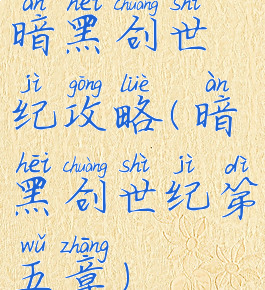 àn hēi chuàng shì
暗黑创世
jì gōng lüè àn
纪攻略(暗
hēi chuàng shì jì dì
黑创世纪第
wǔ zhāng
五章)